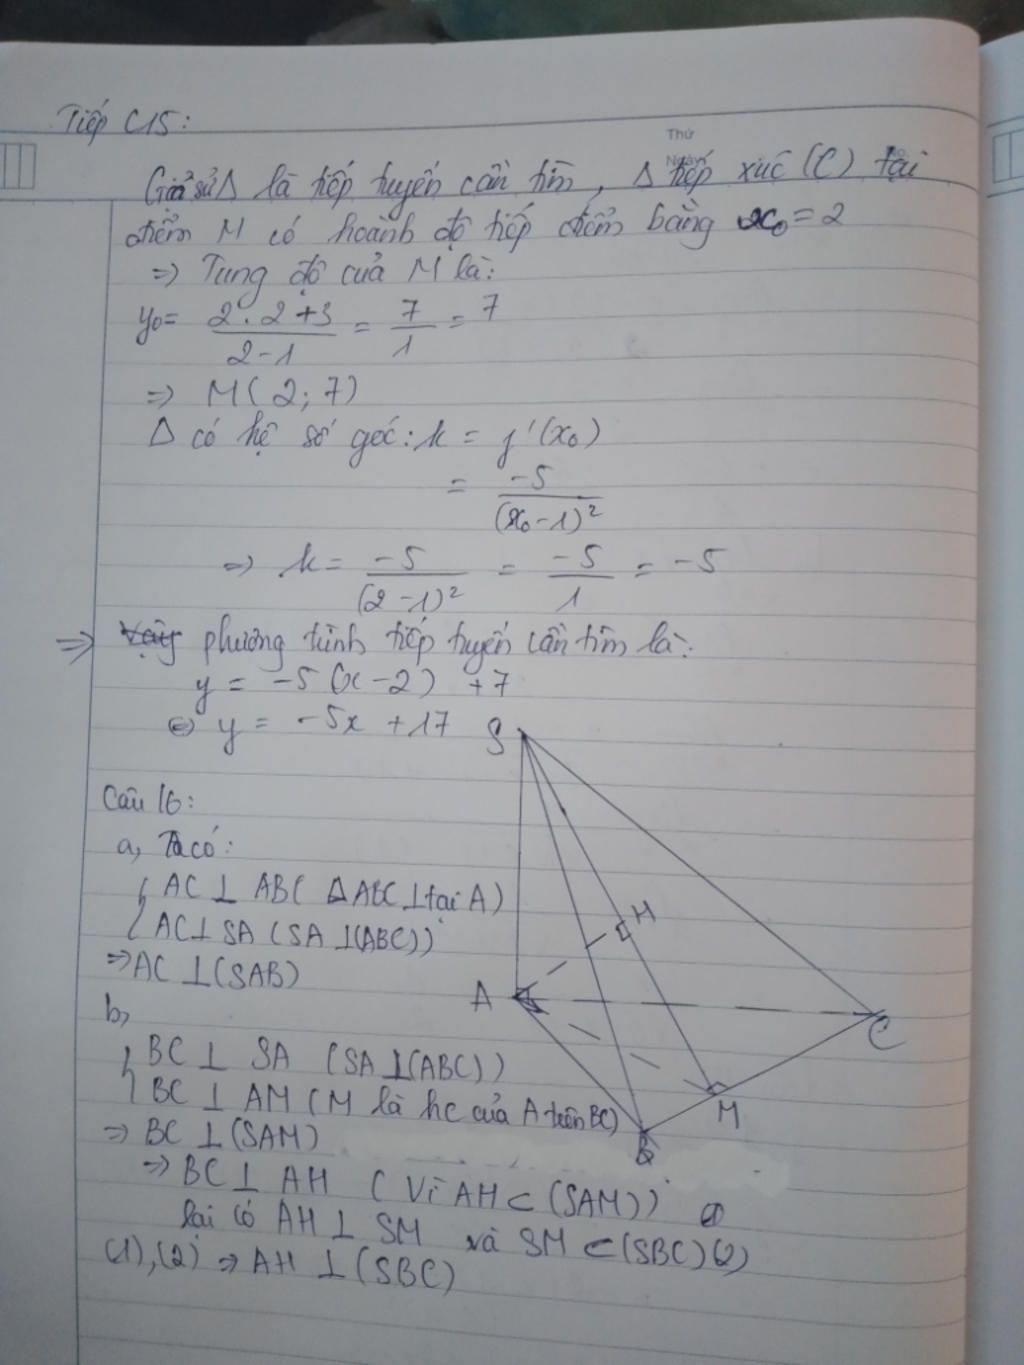 Tiếp C15:
Thứ
Ngày
Giả sử Δ là tiếp tuyến cần tìm, Δ tiếp xúc (C) tại
điểm M có hoành độ tiếp điểm bằng x₀ = 2
=> Tung độ của M là:
y₀ = (2.2+3)/(2-1) = 7/1 = 7
=> M(2; 7)
Δ có hệ số góc: k = f'(x₀)
= -5/(x₀-1)²
=> k = -5/(2-1)² = -5/1 = -5
=> Vậy phương trình tiếp tuyến cần tìm là:
y = -5(x-2) +7
<=> y = -5x +17
S
Câu 16:
a, Ta có:
{ AC ⊥ AB ( ΔABC ⊥ tại A)
{ AC ⊥ SA (SA ⊥ (ABC))
=> AC ⊥ (SAB)
H
A
C
M
B
b,
{ BC ⊥ SA (SA ⊥ (ABC))
{ BC ⊥ AM (M là hc của A trên BC)
=> BC ⊥ (SAM)
=> BC ⊥ AH ( Vì AH ⊂ (SAM)) (1)
lại có AH ⊥ SM và SM ⊂ (SBC) (2)
(1), (2) => AH ⊥ (SBC)